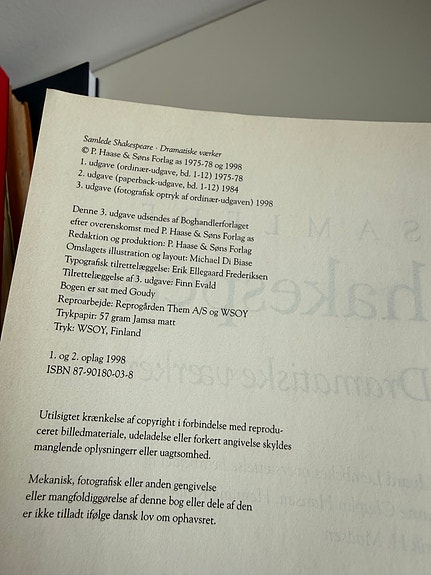 Samlede Shakespeare · Dramatiske værker
© P. Haase & Søns Forlag as 1975-78 og 1998
1. udgave (ordinær-udgave, bd. 1-12) 1975-78
2. udgave (paperback-udgave, bd. 1-12) 1984
3. udgave (fotografisk optryk af ordinær-udgaven) 1998
Denne 3. udgave udsendes af Boghandlerforlaget
efter overenskomst med P. Haase & Søns Forlag as
Redaktion og produktion: P. Haase & Søns Forlag
Omslagets illustration og layout: Michael Di Biase
Typografisk tilrettelæggelse: Erik Ellegaard Frederiksen
Tilrettelæggelse af 3. udgave: Finn Evald
Bogen er sat med Goudy
Reproarbejde: Reprogården Them A/S og WSOY
Trykpapir: 57 gram Jamsa matt
Tryk: WSOY, Finland
1. og 2. oplag 1998
ISBN 87-90180-03-8
Utilsigtet krænkelse af copyright i forbindelse med reprodu-
ceret billedmateriale, udeladelse eller forkert angivelse skyldes
manglende oplysningerr eller uagtsomhed.
Mekanisk, fotografisk eller anden gengivelse
eller mangfoldiggørelse af denne bog eller dele af den
er ikke tilladt ifølge dansk lov om ophavsret.